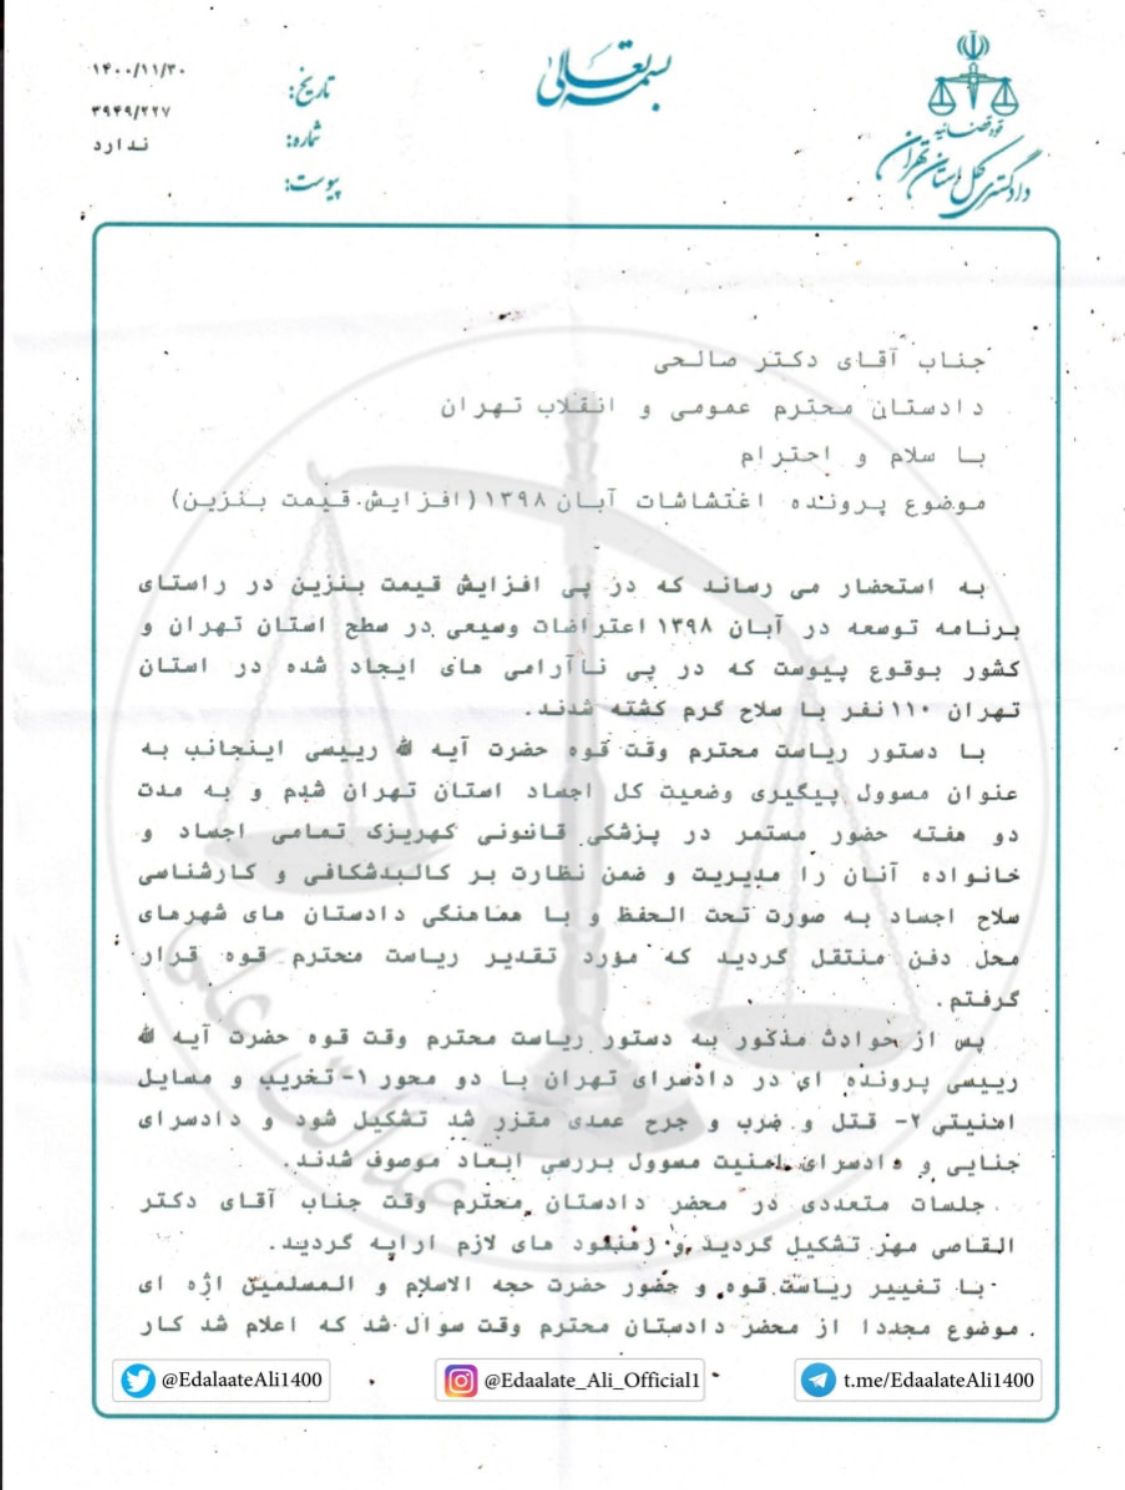 بسمه تعالی
قوه قضائیه
دادگستری کل استان تهران
تاریخ: ۱۴۰۰/۱۱/۳۰
شماره: ۳۹۴۹/۲۲۷
پیوست: ندارد
جناب آقای دکتر صالحی
دادستان محترم عمومی و انقلاب تهران
با سلام و احترام
موضوع پرونده اغتشاشات آبان ۱۳۹۸ (افزایش قیمت بنزین)
به استحضار می رساند که در پی افزایش قیمت بنزین در راستای
برنامه توسعه در آبان ۱۳۹۸ اعتراضات وسیعی در سطح استان تهران و
کشور بوقوع پیوست که در پی ناآرامی های ایجاد شده در استان
تهران ۱۱۰ نفر با سلاح گرم کشته شدند.
با دستور ریاست محترم وقت قوه حضرت آیه الله رییسی اینجانب به
عنوان مسوول پیگیری وضعیت کل اجساد استان تهران شدم و به مدت
دو هفته حضور مستمر در پزشکی قانونی کهریزک تمامی اجساد و
خانواده آنان را مدیریت و ضمن نظارت بر کالبدشکافی و کارشناسی
سلاح اجساد به صورت تحت الحفظ و با هماهنگی دادستان های شهرهای
محل دفن منتقل گردید که مورد تقدیر ریاست محترم قوه قرار
گرفتم.
پس از حوادث مذکور به دستور ریاست محترم وقت قوه حضرت آیه الله
رییسی پرونده ای در دادسرای تهران با دو محور ۱- تخریب و مسایل
امنیتی ۲- قتل و ضرب و جرح عمدی مقرر شد تشکیل شود و دادسرای
جنایی و دادسرای امنیت مسوول بررسی ابعاد موصوف شدند.
جلسات متعددی در محضر دادستان محترم وقت جناب آقای دکتر
القاصی مهر تشکیل گردید و رهنمود های لازم ارایه گردید.
با تغییر ریاست قوه و حضور حضرت حجه الاسلام و المسلمین اژه ای
موضوع مجددا از محضر دادستان محترم وقت سوال شد که اعلام شد کار
عدالت علی
@EdalaateAli1400
@Edaalate_Ali_Official1
t.me/EdaalateAli1400